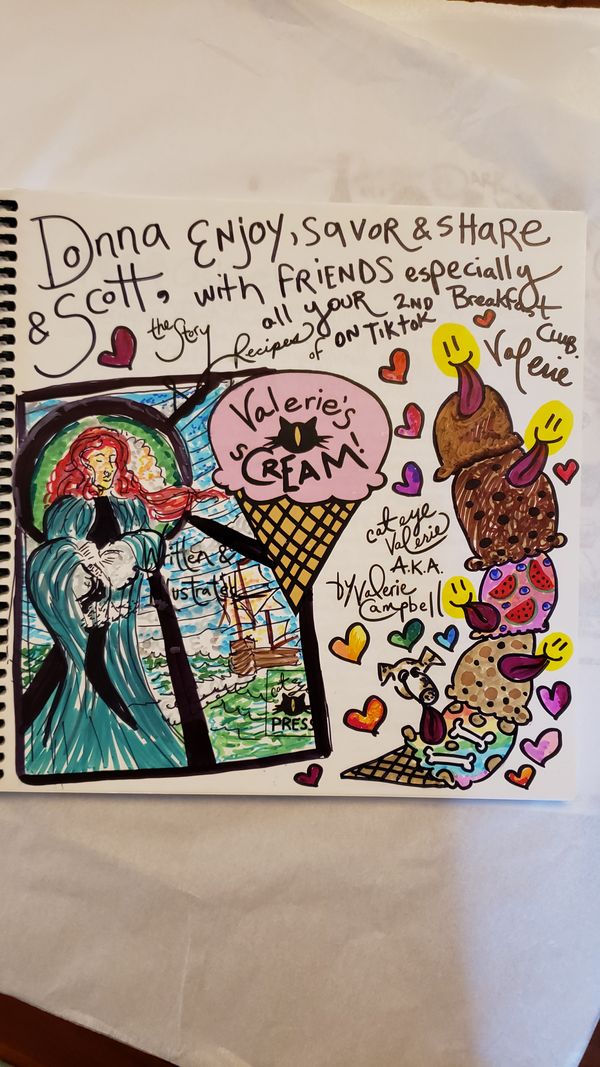 Donna ENJOY, SAVOR & SHARE
& Scott, with FRIENDS especially
all YOUR 2ND Breakfast
Club.
ON TikTok
Valerie
the Story
Recipes
of
Valerie's
sCREAM!
cat eye
Valerie
A.K.A.
by Valerie
Campbell
Written &
Illustrated
cat eye
PRESS